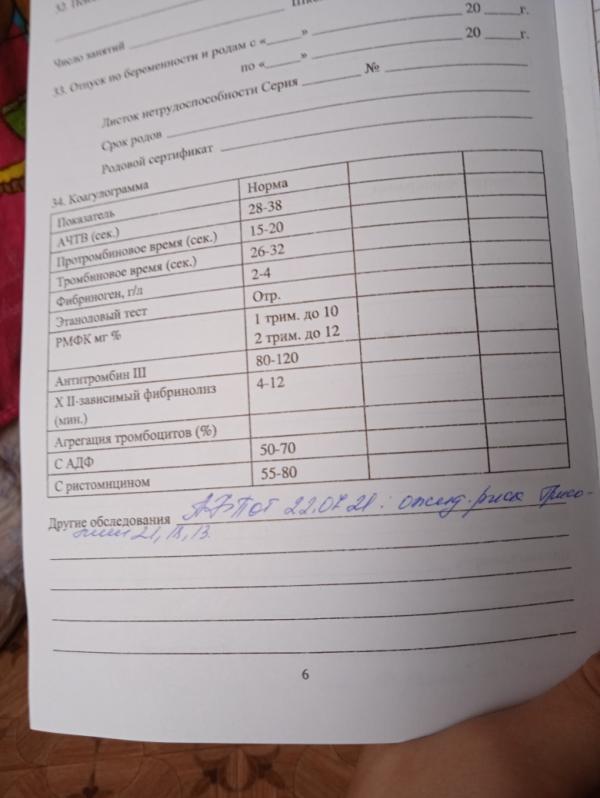 32.
Число занятий
33. Отпуск по беременности и родам с «_____» ________ 20 ____г.
по «_____» ________ 20 ____г.
Листок нетрудоспособности Серия ________ № ________
Срок родов
Родовой сертификат
34. Коагулограмма
Показатель Норма
АЧТВ (сек.) 28-38
Протромбиновое время (сек.) 15-20
Тромбиновое время (сек.) 26-32
Фибриноген, г/л 2-4
Этаноловый тест Отр.
РМФК мг % 1 трим. до 10
2 трим. до 12
Антитромбин III 80-120
X II-зависимый фибринолиз 4-12
(мин.)
Агрегация тромбоцитов (%)
С АДФ 50-70
С ристомицином 55-80
Другие обследования от 22.07.21: риск Трисо-
мии 21, 18, 13.
6